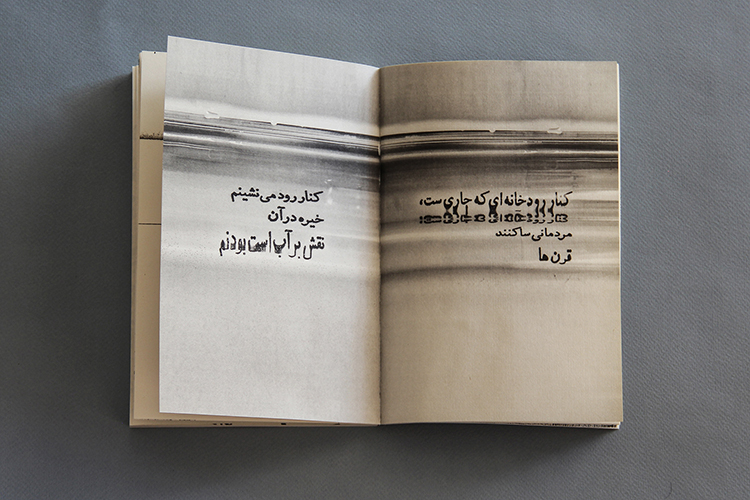 کنار رودخانه‌ای که جاری ست،
مردمانی ساکنند
قرن ها
کنار رود می نشینم
خیره در آن
نقش بر آب است بودنم